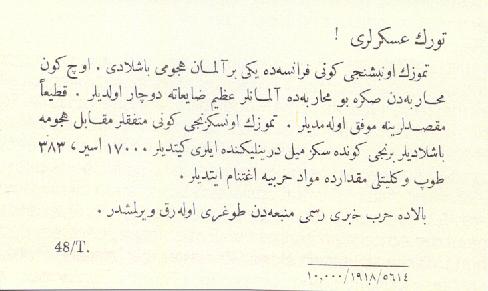 تورك عسكرلرى !
تموزك اونبشنجى كونى فرانسه‌ده يكى بر آلمان هجومى باشلادى . اوچ كون
محاربه‌دن صكره بو محاربه‌ده آلمانلر عظيم ضايعاته دوچار اولديلر . قطيعاً
مقصدلرينه موفق اوله‌مديلر . تموزك اونسكزنجى كونى متفقلر مقابل هجومه
باشلاديلر برنجى كونده سكز ميل درينليكنده ايلرى كيتديلر ١٧٠٠٠ اسير ، ٣٨٣
طوپ وكليتلى مقدارده مواد حربيه اغتنام ايتديلر .
بالاده حرب خبرى رسمى منبعه‌دن طوغرى اوله‌رق ويرلمشدر .
48/T.
١٠,٠٠٠/١٩١٨/٥٦١٤